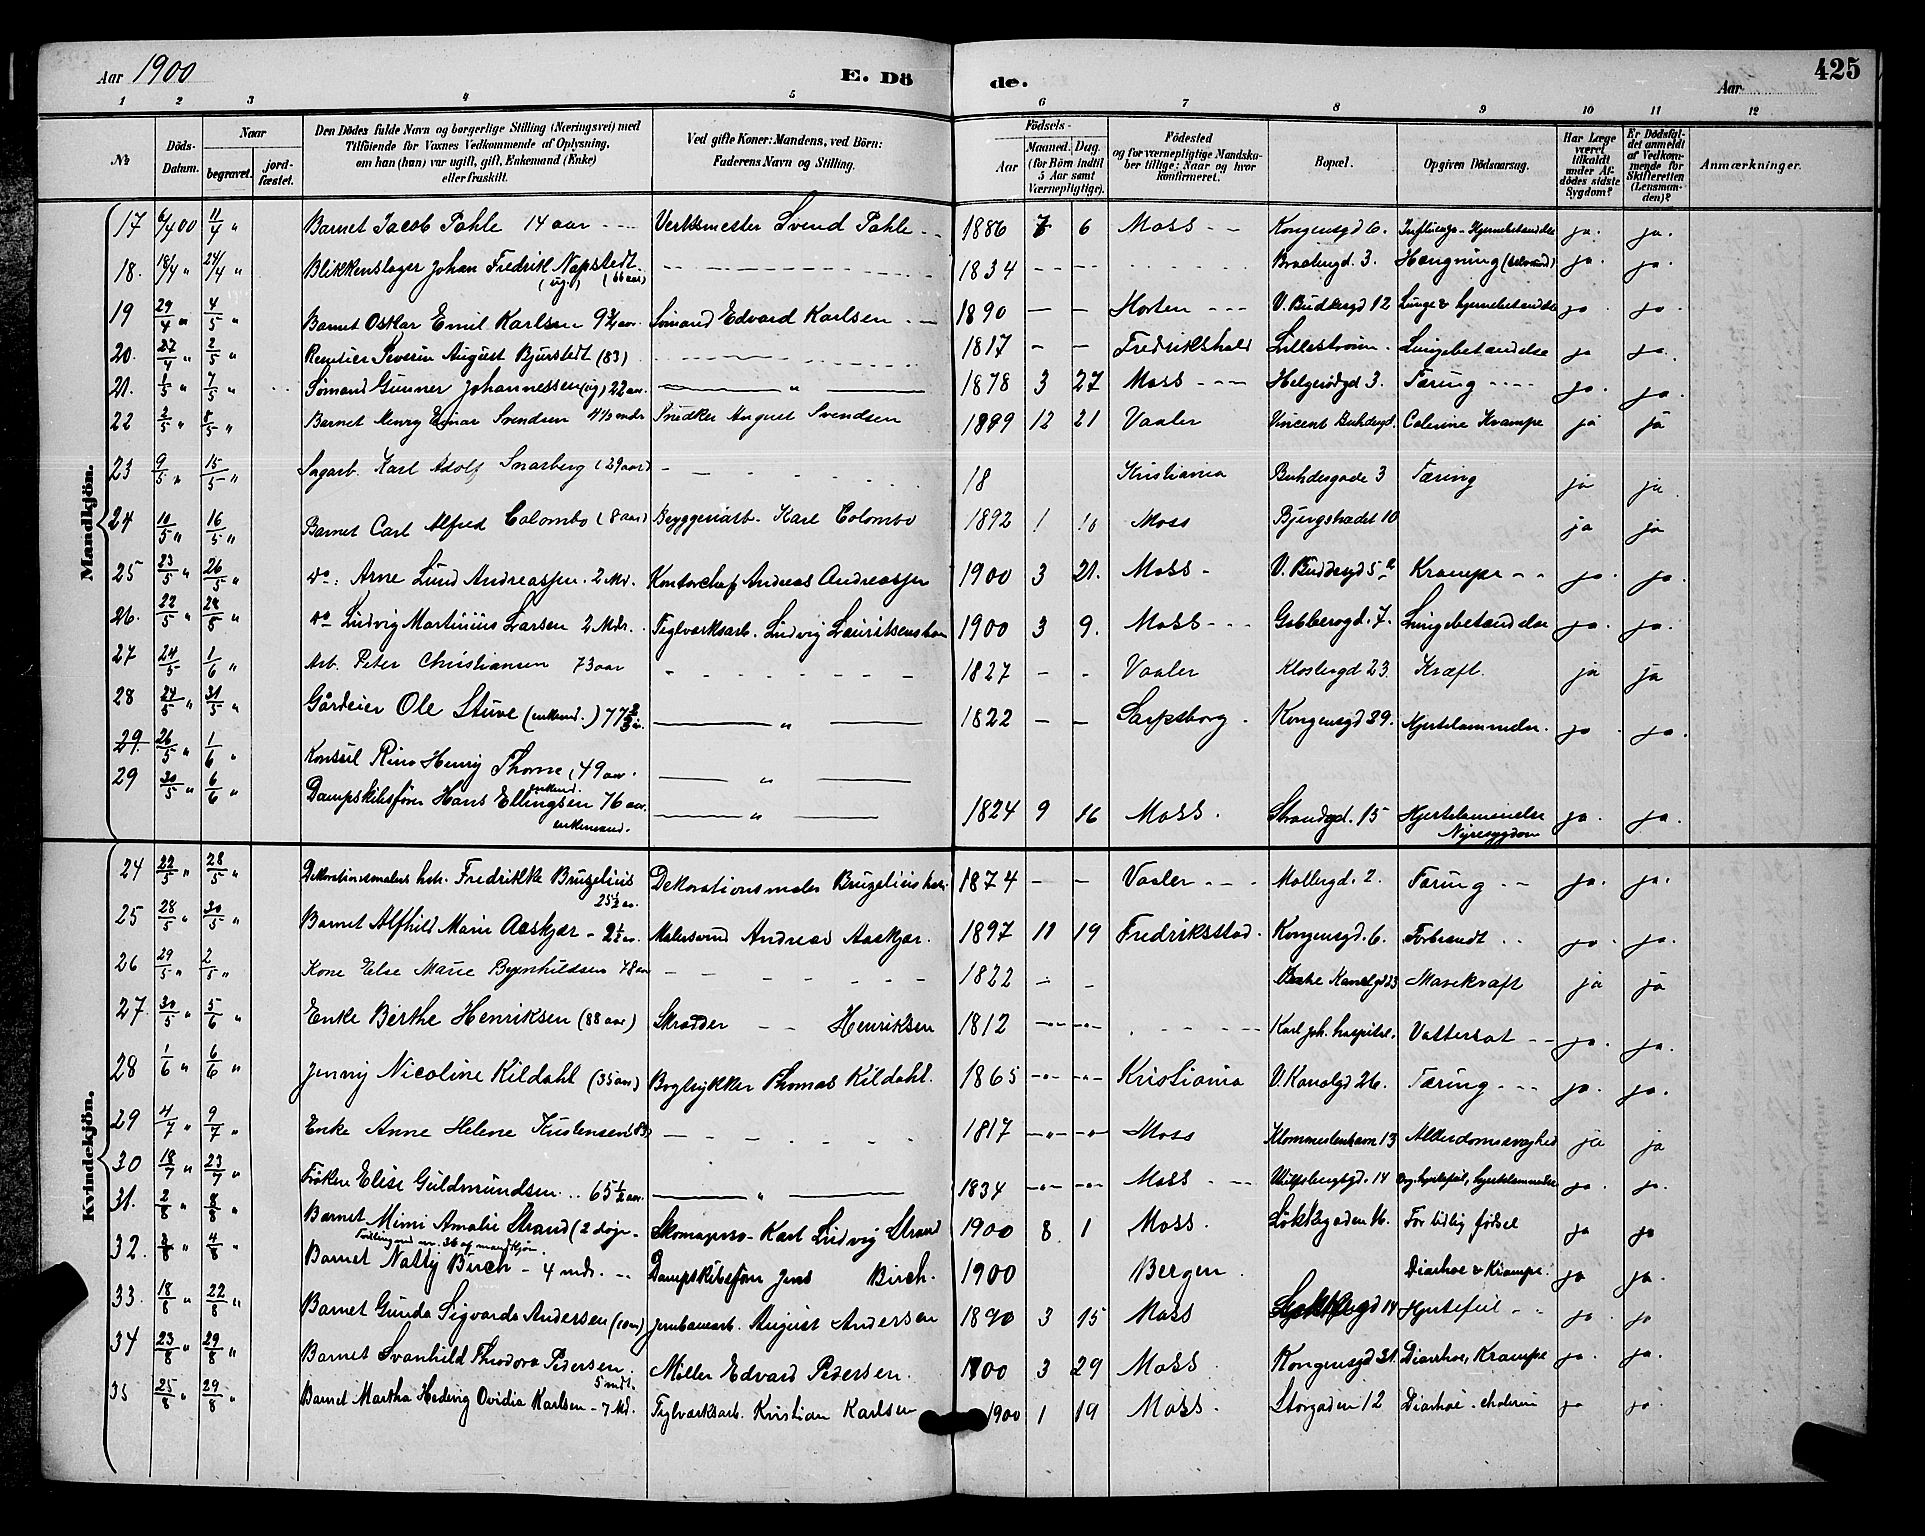 Aar 1900 E. Dö de. Aar 425
1 2 3 4 5 6 7 8 9 10 11 12
No Döds-Datum. Naar begravet. jordfæstet. Den Dödes fulde Navn og borgerlige Stilling (Næringsvei) med Tilföiende for Voxnes Vedkommende af Oplysning, om han (hun) var ugift, gift, Enkemand (Enke) eller fraskilt. Ved gifte Koner: Mandens, ved Börn: Faderens Navn og Stilling. Födsels- Aar Maaned. Dag. (for Börn indtil 5 Aar samt Værnepligtige). Födested og for værnepligtige Mandskaber tillige: Naar og hvor konfirmeret. Bopæl. Opgiven Dödsaarsag. Har Læge været tilkaldt under Afdödes sidste Sygdom? Er Dödsfaldet anmeldt af Vedkommende for Skifteretten (Lensmanden)? Anmærkninger.
Mandkjön.
17 6/4 00 11/4 " Barnet Jacob Pahle 14 aar Verksmester Svend Pahle 1886 6 Moss Kongensgd 6. ja. ja.
18. 18/4 " 24/4 " Blikkenslager Johan Fredrik Napstedt (ug.) (66 aar) 1834 3. Hængning ja. ja.
19 29/4 " 4/5 " Barnet Oskar Emil Karlsen Sömand Edvard Karlsen 1890 Horten V. Buddesgd 12 Lunge & hjernebetændelse ja ja.
20. 27/4 " 2/5 " Rentier Severin August Bjurstedt (83) 1817 Fredrikshald Lilleström Lungebetændelse ja ja.
21. 1/5 " 7/5 " Sömand Gunner Johannessen (ug) 22 aar. " 1878 3 27 Moss Helgerödgd 3. Tæring ja. ja.
22 2/5 " 8/5 " Barnet Henry Einar Svendsen 4½ mdr Snedker August Svendsen 1899 12 21 Vaaler Vincent Buddesgd. Colerine Krampe ja ja
23 9/5 " 15/5 " Sagarb. Karl Adolf Snarberg (29 aar) 18 Kristiania Buddesgade 3 Tæring ja ja
24 10/5 " 16/5 " Barnet Carl Alfred Colombo (8 aar) Bryggeriarb. Karl Colombo 1892 1 10 Moss Bjergstrædet 10 ja ja
25 23/5 " 26/5 " do: Arne Lund Andreassen. 2 Md. Kontorchef Andreas Andreassen 1900 3 21. Moss V. Buddesgd 5 a Krampe ja. ja.
26. 22/5 " 28/5 " do Ludvig Martinius Larsen 2 Mdr. Teglværksarb. Ludvig Lauritsens barn 1900 3 9. Moss 7. Lungebetændelse ja. ja.
27 24/5 1/6 " Arb. Peter Christiansen 73 aar 1827 Vaaler Klostergd 23. Kræft. ja ja
28 24/5 " 31/5 " Gårdeier Ole Stuve (enkemd.) 77 " 1822 Sarpsborg Kongensgd 39. Hjertelammelse. ja ja.
29. 26/5 " 1/6 " Konsul Rino Henry Thorne, 49 aar. "
29 30/5 " 6/6 " Dampskibsförer Hans Ellingsen 76 aar. enkemand. " 1824 9 16 Moss. Strandgd. 15 Hjertelammelse Nyresygdom ja. ja.
Kvindekjön.
24 22/5 " 28/5 " Dekorationsmalers hstr. Fredrikke Bruzelius 25½ aar. Dekorationsmaler Bruzelius 1874 Vaaler Möllergd. 2. Tæring ja. ja.
25 28/5 " 30/5 " Barnet Alfhild Marie Aaskjær - 2½ aar. Malersvend Andreas Aaskjær. 1897 11 19 Fredriksstad. Kongensgd. 6. Forbrændt ja. ja.
26 29/5 " 2/5 " Kone Else Marie Brynhildsen 78 aar 1822 Kanalgd 23 Mavekræft ja ja
27. 30/5 " 5/6 " Enke Berthe Henriksen (88 aar) Skrædder Henriksen 1812 Karl Joh. hospital. Vattersot ja. ja.
28 1/6 " 6/6 " Jenny Nicoline Kildahl (35 aar) Bogtrykker Thomas Kildahl. 1865 Kristiania V. Kanalgd 26. Tæring ja. ja.
29 4/7 " 9/7 " Enke Anne Helene Kristensen (83) 1817 Moss 13 Alderdomssvaghed ja ja
30 18/7 " 23/7 " Fröken Elise Guldmundsen 65½ aar. " 1834 Moss 14 Org. hjertefeil, hjertelammelse ja. ja.
31. 2/8 " 8/8 " Barnet Mimi Amalie Strand (2 döge Tvilling med nr. 36 af mandkjön. Skomagers. Karl Ludvig Strand 1900 8 1 Moss. Lökkegaden 16. For tidlig födsel ja ja
32. 4/8 " Barnet Natty Birch - 4 mdr. Dampskibsförer Jens Birch. 1900 Bergen. Diarhoe & Krampe. ja ja.
33. 18/8 " 22/8 " Barnet Gunda Sigvarda Andersen (10 aar) Jernbanearb. August Andersen 1890 3 15 Moss 14 Hjertefeil ja. ja
34 23/8 " 29/8 " Barnet Svanhild Theodora Pedersen. 5 mdr. Möller Edvard Pedersen. 1900 3 29 Moss Kongensgd 31. Diarrhoe, Krampe ja. ja.
35 25/8 " 29/8 " Barnet Martha Hedevig Ovidia Karlsen - 7 Md. Teglværksarb. Kristian Karlsen 1900 1 19 Moss. Storgaden 12 Diarhoe - cholerine ja ja.